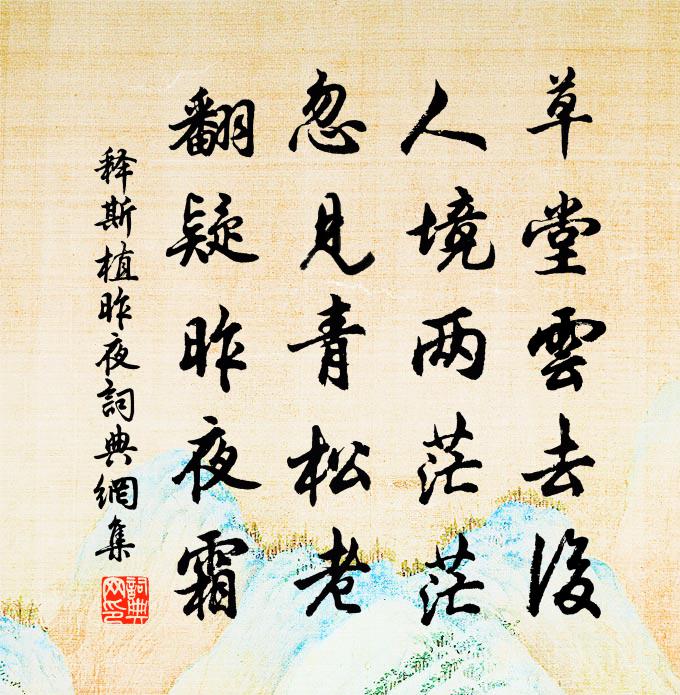 草堂雲去後
人境两茫茫
忽見青松老
翻疑昨夜霜
释斯植昨夜詞典網集
詞典網印